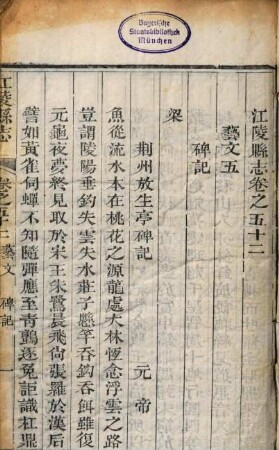 Bayerische
Staatsbibliothek
München
江陵縣志卷之五十二
藝文五
碑記
梁
荆州放生亭碑記 元帝
魚從流水本在桃花之源龍處大林恆念浮雲之路
豈謂陵陽垂釣失雲失水莊子懸竿吞鈎吞餌雖復
元龜夜夢終見取於宋王朱鷺晨飛尙張羅於漢后
譬如黃雀伺蟬不知隨彈應至青鸇逐兔詎識杠鼎
江陵縣志 卷之五十二 藝文 碑記